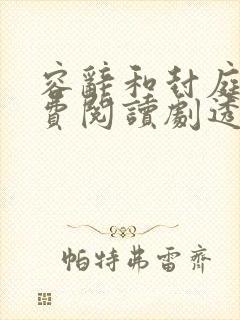 容辭和封庭
費閱讀劇透
帕特弗雷齊